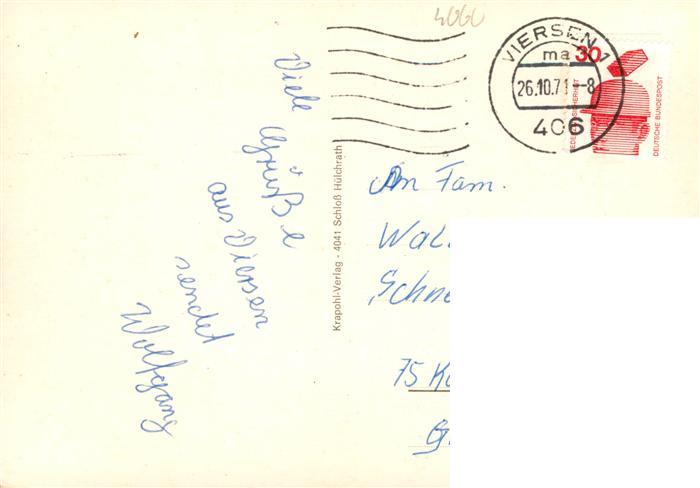 4060
VIERSEN 1
ma
26.10.7
-8
406
30
JEDERZEIT SICHERHEIT
DEUTSCHE BUNDESPOST
Viele
Grüße
aus Viersen
sendet
Wolfgang
Krapohl-Verlag - 4041 Schloß Hülchrath
An Fam.
Wal
Schne
75 K